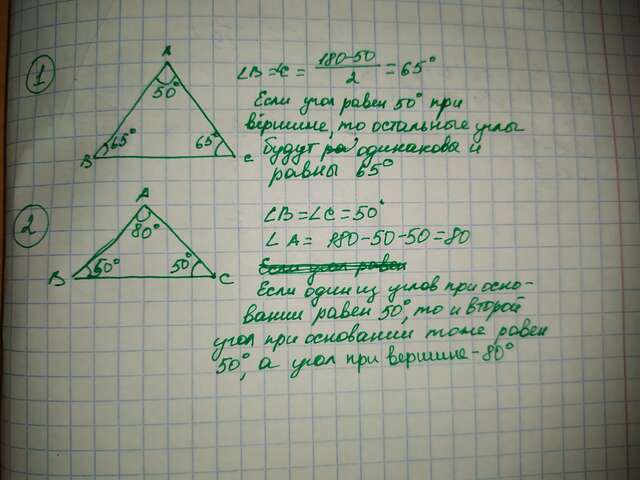 1
A
50°
B
65°
65°
C
∠B=∠C = 180-50 / 2 = 65°
Если угол равен 50° при
вершине, то остальные углы
будут одинаковы и
равны 65°
2
A
80°
B
50°
50°
C
∠B=∠C=50°
∠A= 180-50-50=80
Если угол равен
Если один из углов при осно-
вании равен 50°, то и второй
угол при основании тоже равен
50°, а угол при вершине-80°